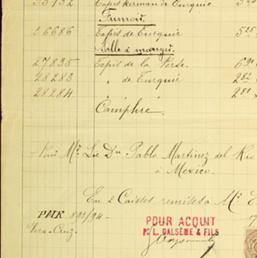 Tapis Kerman de Turquie
Fumoir
26686 Tapis de Turquie 5
Salle à manger
27835 Tapis de la Perse 6
28283 " de Turquie 2
28284 281
Camphre
Mr Le Dn Pablo Martinez del Rio
à Mexico
En 2 Caisses remises à Mr
PMR 801/94
Vera-Cruz
POUR ACQUIT
Pr L. DALSÈME & FILS